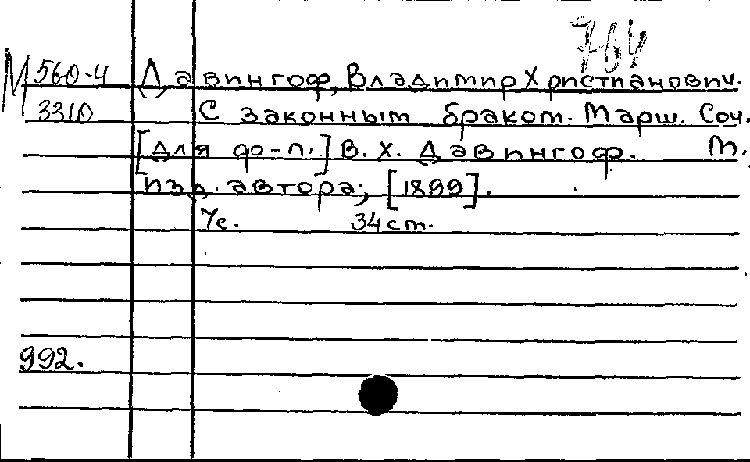 764
М 560-4 Давингоф, Владимир Христианович.
3310 С законным браком. Марш. Соч.
[для фо-п.] В. Х. Давингоф. М.
изд. автора, [1899].
7с. 34 ст.
992.